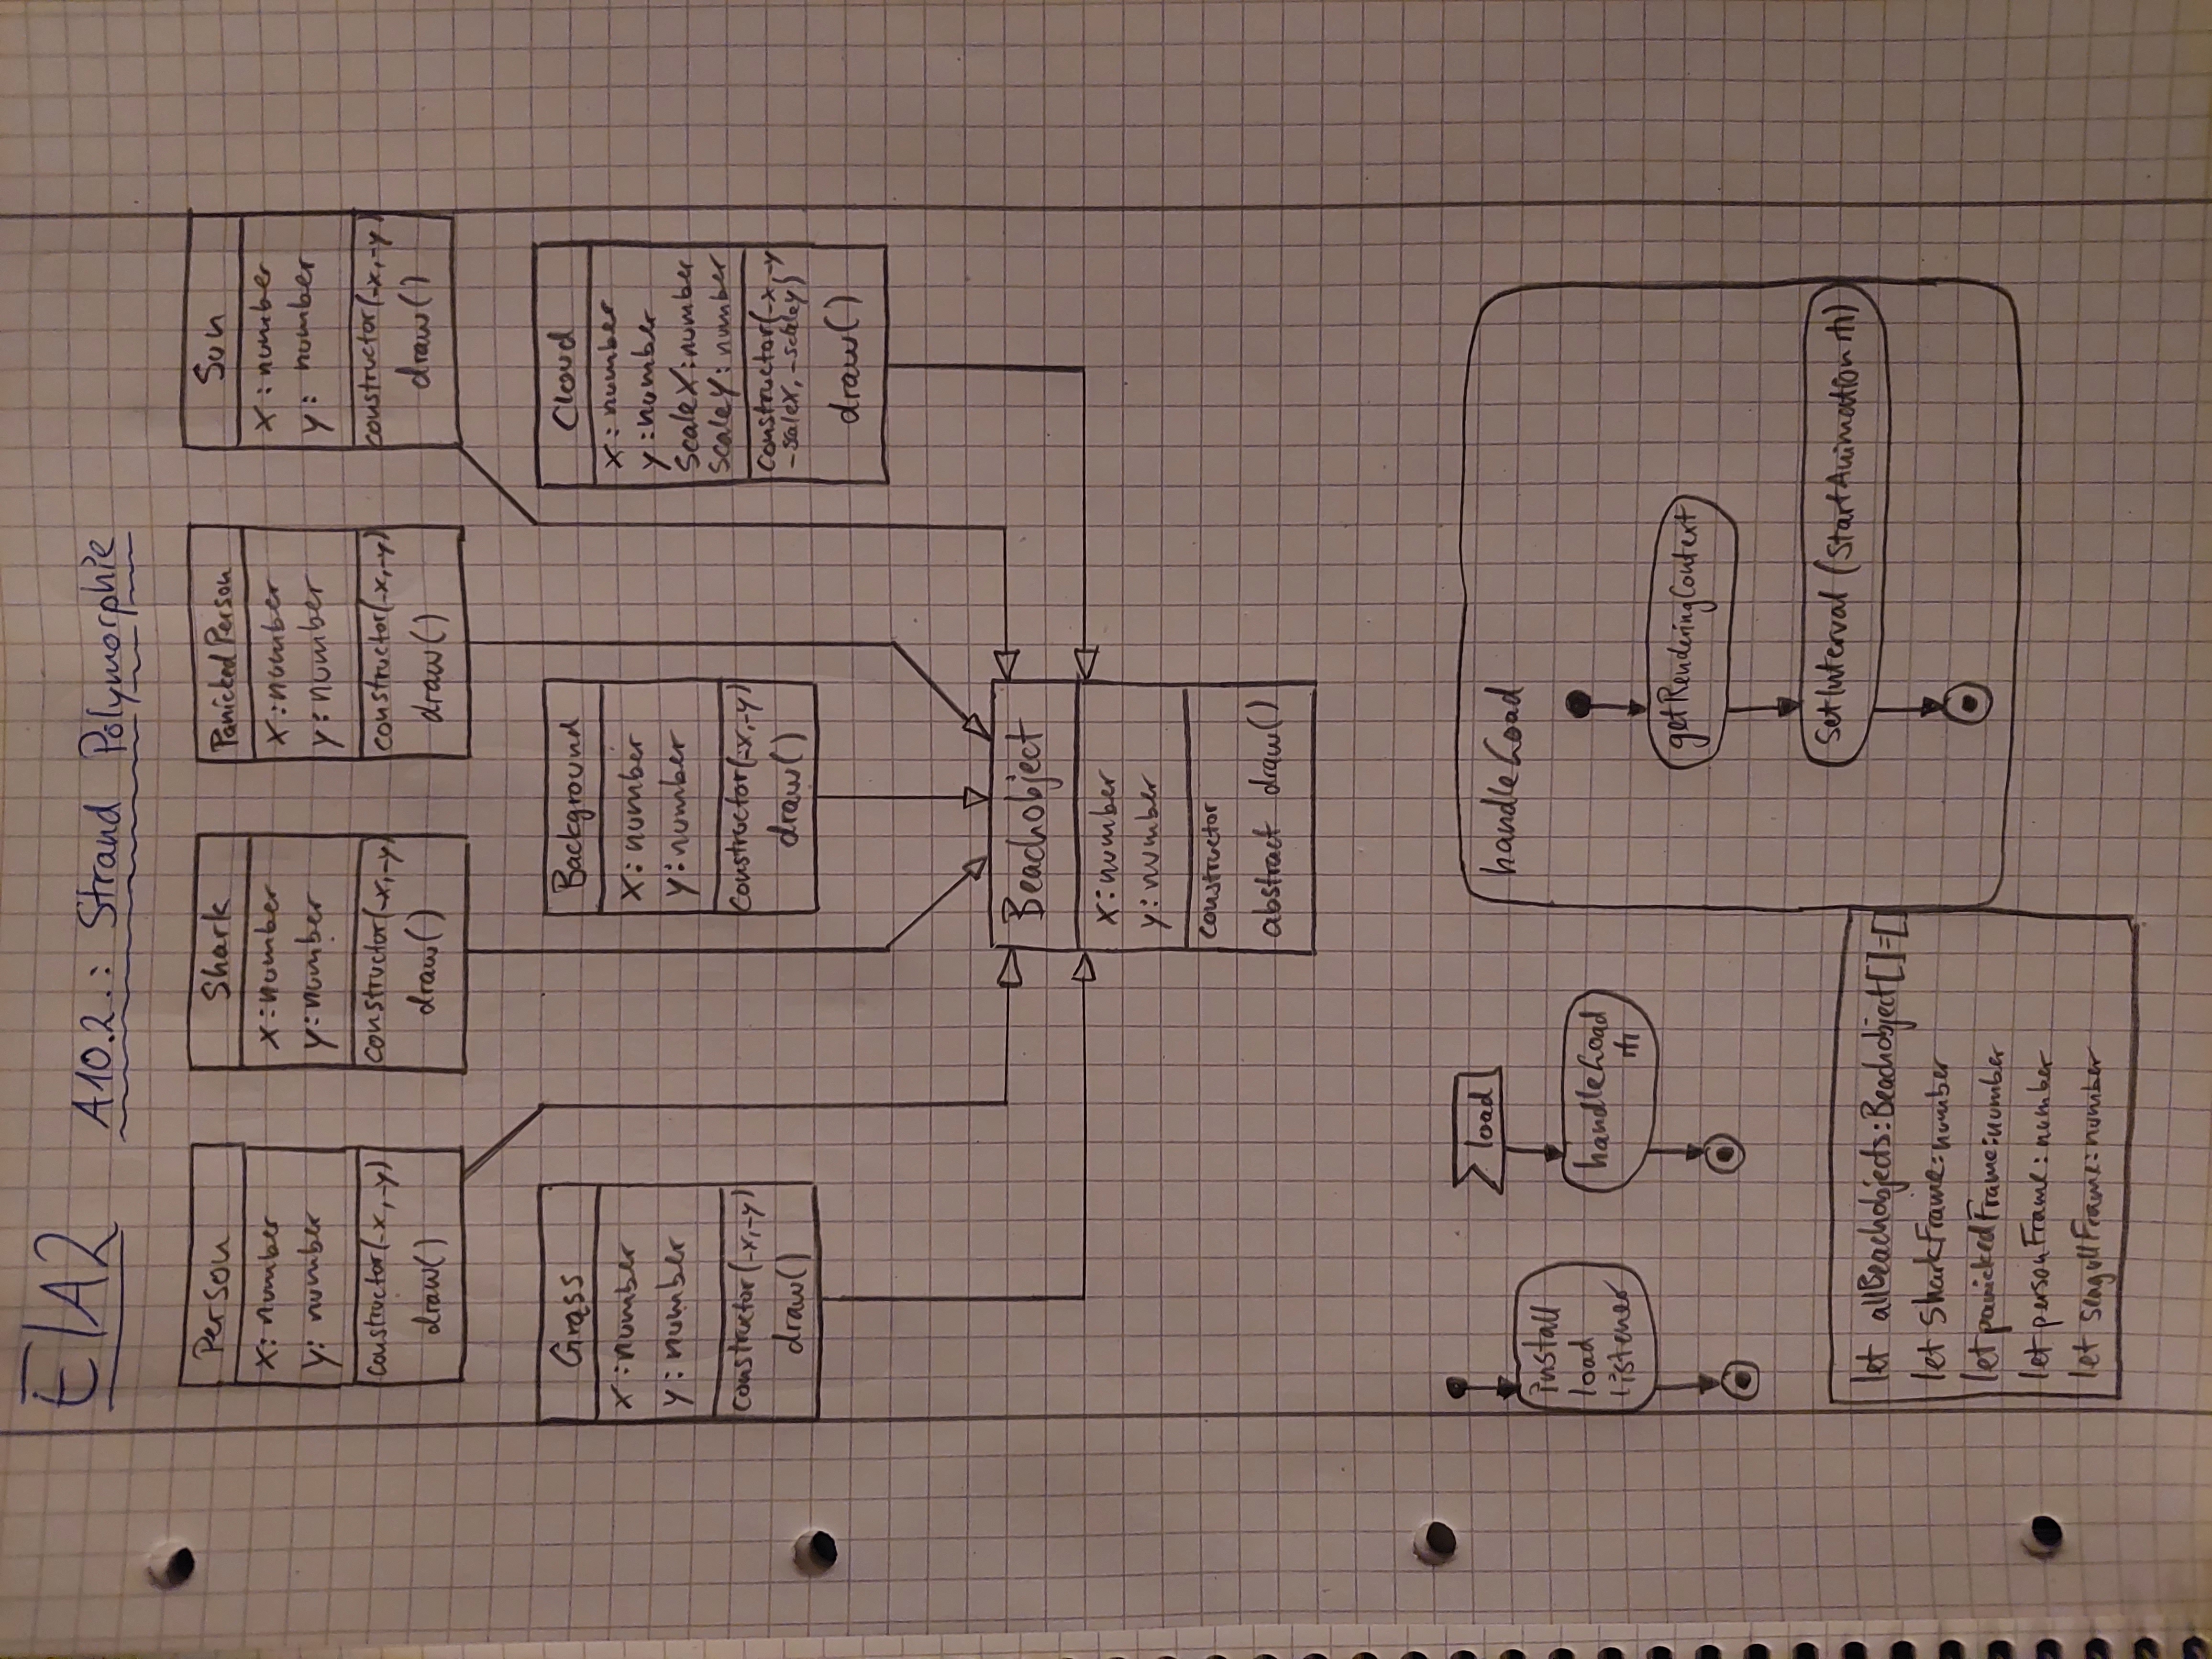 EIA2
A10.2.: Strand Polymorphie
Person
x: number
y: number
constructor(_x,_y)
draw()
Shark
x:number
y:number
constructor(_x,_y)
draw()
PanickedPerson
x:number
y:number
constructor(_x,_y)
draw()
Sun
x:number
y: number
constructor(_x,_y)
draw()
Grass
x:number
y:number
constructor(_x,_y)
draw()
Background
x:number
y:number
constructor(_x,_y)
draw()
Cloud
x: number
y:number
scaleX:number
scaleY:number
constructor(_x,_y
_scaleX, _scaleY)
draw()
Beachobject
x:number
y:number
constructor
abstract draw()
install
load
listener
load
handleLoad
handleLoad
getRenderingContext
SetInterval (StartAnimation)
let allBeachobjects:Beachobject[]=[]
let SharkFrame:number
let panickedFrame:number
let personFrame:number
let seagullFrame:number